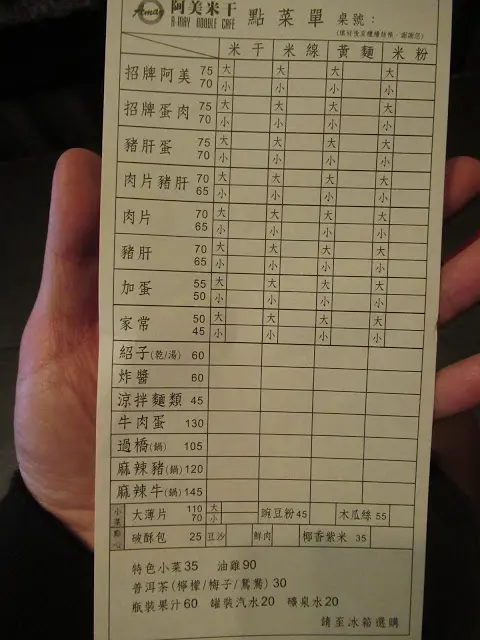 Amay 阿美米干 點菜單 桌號：
A-MAY NOODLE CAFE (填好後至櫃檯結帳，謝謝您)
米干 米線 黃麵 米粉
招牌阿美 75 大 大 大 大
70 小 小 小 小
招牌蛋肉 75 大 大 大 大
70 小 小 小 小
豬肝蛋 75 大 大 大 大
70 小 小 小 小
肉片豬肝 70 大 大 大 大
65 小 小 小 小
肉片 70 大 大 大 大
65 小 小 小 小
豬肝 70 大 大 大 大
65 小 小 小 小
加蛋 55 大 大 大 大
50 小 小 小 小
家常 50 大 大 大 大
45 小 小 小 小
紹子(乾/湯) 60
炸醬 60
涼拌麵類 45
牛肉蛋 130
過橋(鍋) 105
麻辣豬(鍋) 120
麻辣牛(鍋) 145
小菜點心 大薄片 110 大 豌豆粉 45 木瓜絲 55
70 小
破酥包 25 豆沙 鮮肉 椰香紫米 35
特色小菜35 油雞90
普洱茶(檸檬/梅子/鴛鴦) 30
瓶裝果汁60 罐裝汽水20 礦泉水20
請至冰箱選購